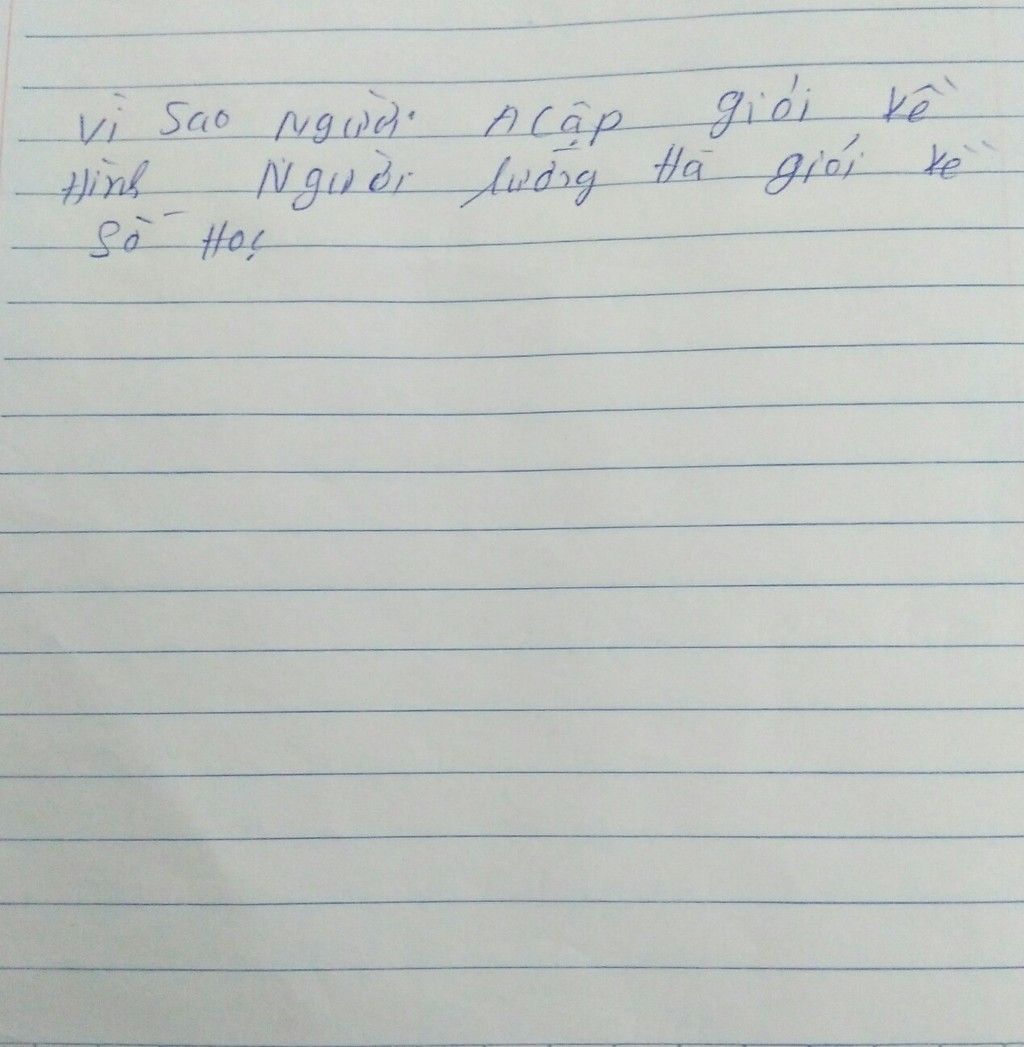 Vì sao Người Ai Cập giỏi về
Hình Người Lưỡng Hà giỏi về
Số Học